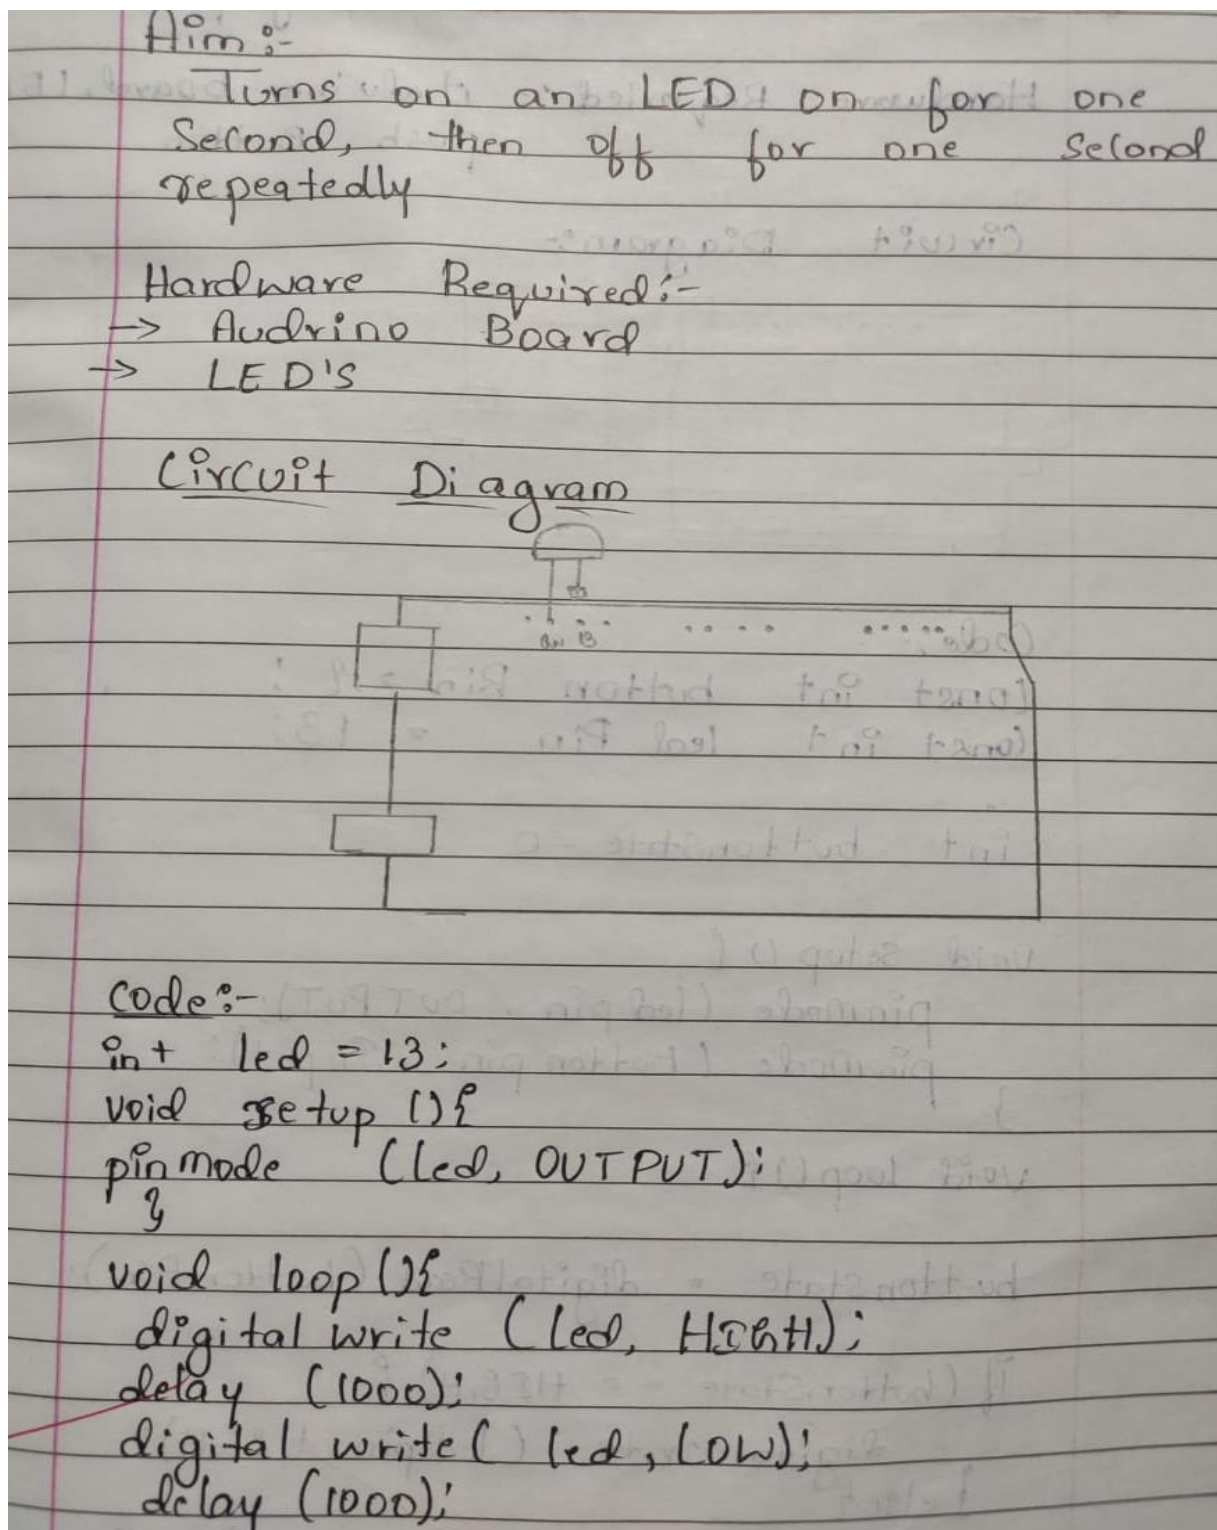 Aim :-
Turns on an LED on for one
Second, then off for one Second
repeatedly
Hardware Required :-
→ Audrino Board
→ LED'S
Circuit Diagram
13
code :-
int led = 13;
void setup () {
pinmode (led, OUTPUT);
}
void loop () {
digital write (led, HIGH);
delay (1000);
digital write ( led, LOW);
delay (1000);